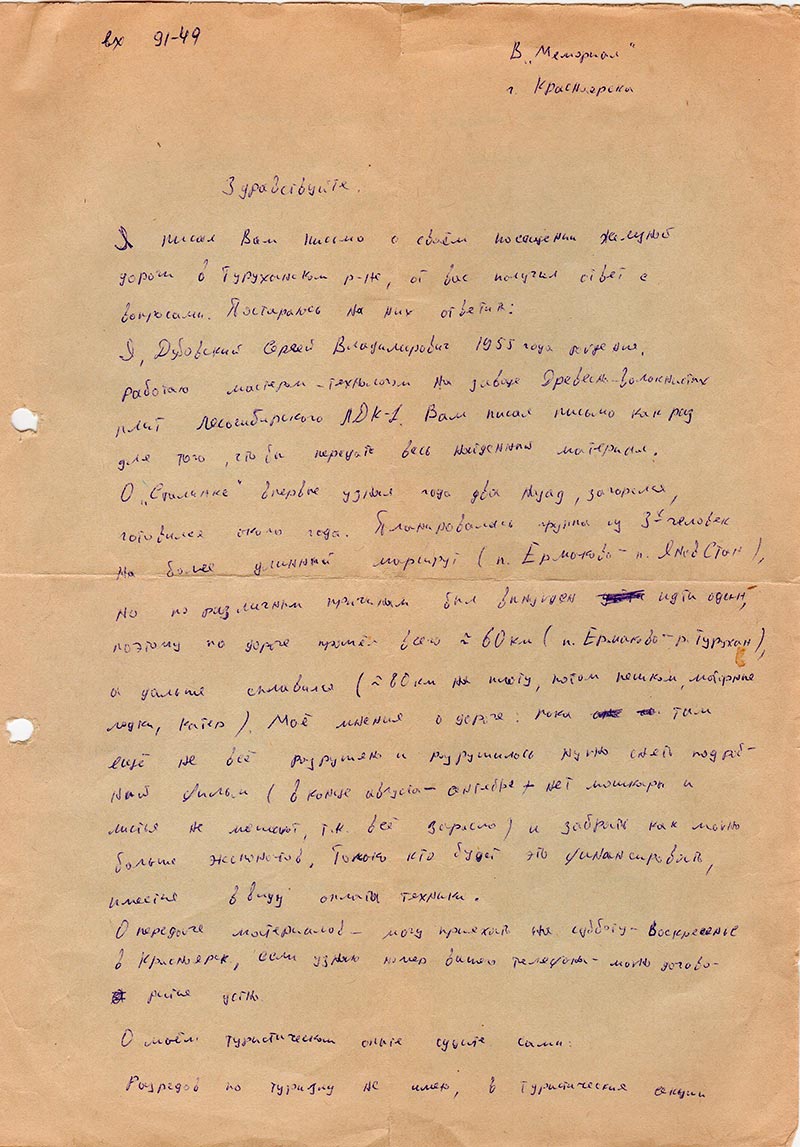 вх 91-49
В „Мемориал"
г. Красноярска
Здравствуйте.
Я писал Вам письмо о своём посещении железной
дороги в Туруханском р-не, от вас получил ответ с
вопросами. Постараюсь на них ответить:
Я, Дубовский Сергей Владимирович 1955 года рождения,
работаю мастером-технологом на заводе Древесно-волокнистых
плит Лесосибирского ЛДК-1. Вам писал письмо как раз
для того, чтобы передать весь найденный материал.
О „Сталинке" впервые узнал года два назад, загорелся,
готовился около года. Планировалась группа из 3х человек
на более длинный маршрут (п. Ермаково - п. Янов Стан),
но по различным причинам был вынужден идти один,
поэтому по дороге прошёл всего ≈ 60 км (п. Ермаково - р. Турухан),
а дальше сплавился (≈ 80 км на плоту, потом пешком, моторные
лодки, катер). Моё мнение о дороге: пока там
ещё не всё разрушено и разрушилось нужно снять подроб-
ный фильм (в конце августа - сентябре + нет мошкары и
листья не мешают, т.к. всё заросло) и забрать как можно
больше экспонатов. Только кто будет это финансировать,
имеется в виду оплаты техники.
О передаче материалов - могу приехать на субботу - Воскресенье
в Красноярск, если узнаю номер вашего телефона - можно догово-
рится устно.
О моём туристическом опыте судите сами:
Разрядов по туризму не имею, в туристические секции